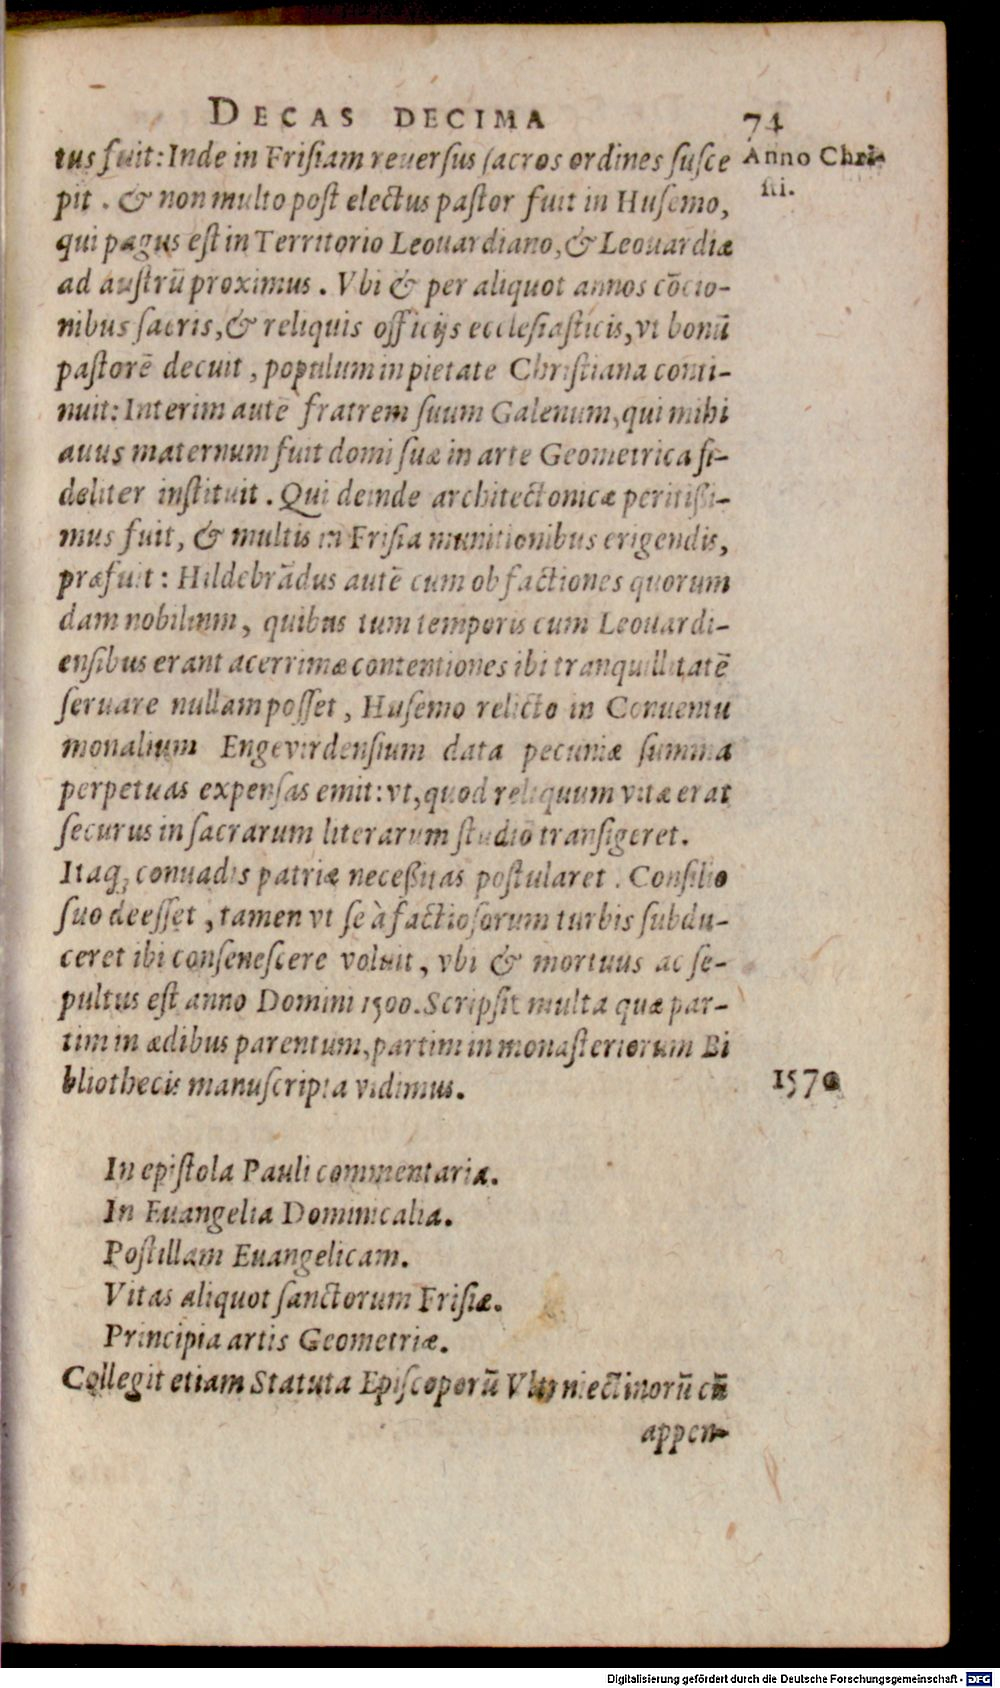 DECAS DECIMA 74
tus fuit: Inde in Frisiam reuersus sacros ordines susce
Anno Chri-
sti.
pit. & non multo post electus pastor fuit in Husemo,
qui pagus est in Territorio Leouardiano, & Leouardiæ
ad austrū proximus. Vbi & per aliquot annos cōcio-
nibus sacris, & reliquis officijs ecclesiasticis, vt bonū
pastorē decuit, populum in pietate Christiana conti-
nuit: Interim autē fratrem suum Galenum, qui mihi
auus maternum fuit domi suæ in arte Geometrica fi-
deliter instituit. Qui deinde architectonicæ peritißi-
mus fuit, & multis in Frisia munitionibus erigendis,
præfuit: Hildebrādus autē cum ob factiones quorum
dam nobilium, quibus tum temporis cum Leouardi-
ensibus erant acerrimæ contentiones ibi tranquillitatē
seruare nullam posset, Husemo relicto in Conuentu
monalium Engevirdensium data pecuniæ summa
perpetuas expensas emit: vt, quod reliquum vitæ erat
securus in sacrarum literarum studio transigeret.
Itaq; conuadis patriæ neceßitas postularet. Consilio
suo deesset, tamen vt se à factiosorum turbis subdu-
ceret ibi consenescere voluit, vbi & mortuus ac se-
pultus est anno Domini 1500. Scripsit multa quæ par-
tim in ædibus parentum, partim in monasteriorum Bi
bliothecis manuscripta vidimus.
1570
In epistola Pauli commentaria.
In Euangelia Dominicalia.
Postillam Euangelicam.
Vitas aliquot sanctorum Frisiæ.
Principia artis Geometriæ.
Collegit etiam Statuta Episcoporū cū
appen-
Digitalisierung gefördert durch die Deutsche Forschungsgemeinschaft - DFG